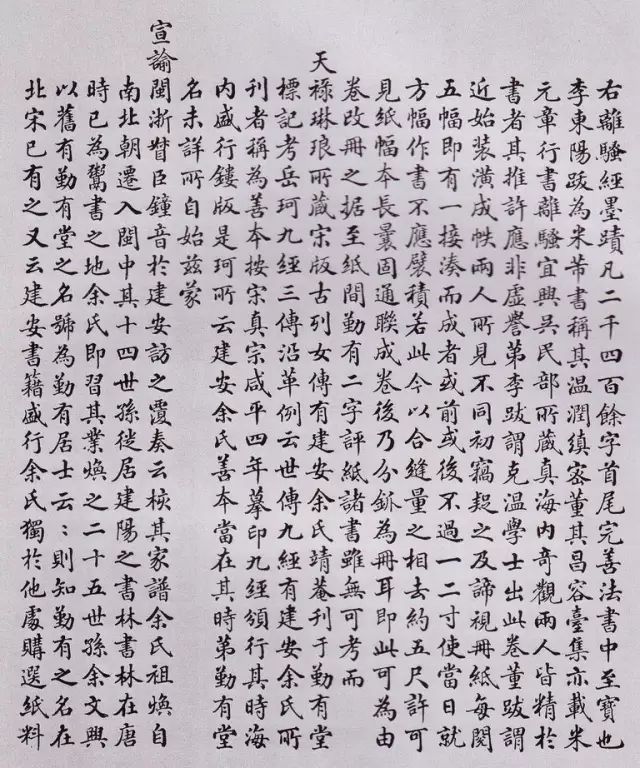 右離騷經墨蹟凡二千四百餘字首尾完善法書中至寶也
李東陽跋為米芾書稱其溫潤縝密董其昌容臺集亦載米
元章行書離騷宜興吳民部所藏真海內奇觀兩人皆精於
書者其推許應非虛譽第李跋謂克溫學士出此卷董跋謂
近始裝潢成帙兩人所見不同初竊疑之及諦視冊紙每閱
五幅即有一接湊而成者或前或後不過一二寸使當日就
方幅作書不應襞積若此今以合縫量之相去約五尺許可
見紙幅本長曩固通聯成卷後乃分𨥤為冊耳即此可為由
卷改冊之据至紙間勤有二字評紙諸書雖無可考而
天祿琳琅所藏宋版古列女傳有建安余氏靖菴刊于勤有堂
標記考岳珂九經三傳沿革例云世傳九經有建安余氏所
刊者稱為善本按宋真宗咸平四年摹印九經頒行其時海
內盛行鏤版是珂所云建安余氏善本當在其時第勤有堂
名未詳所自始茲蒙
宣諭閩浙督臣鐘音於建安訪之覆奏云核其家譜余氏祖煥自
南北朝遷入閩中其十四世孫徙居建陽之書林書林在唐
時已為鬻書之地余氏即習其業煥之二十五世孫余文興
以舊有勤有堂之名號為勤有居士云：則知勤有之名在
北宋已有之又云建安書籍盛行余氏獨於他處購選紙料